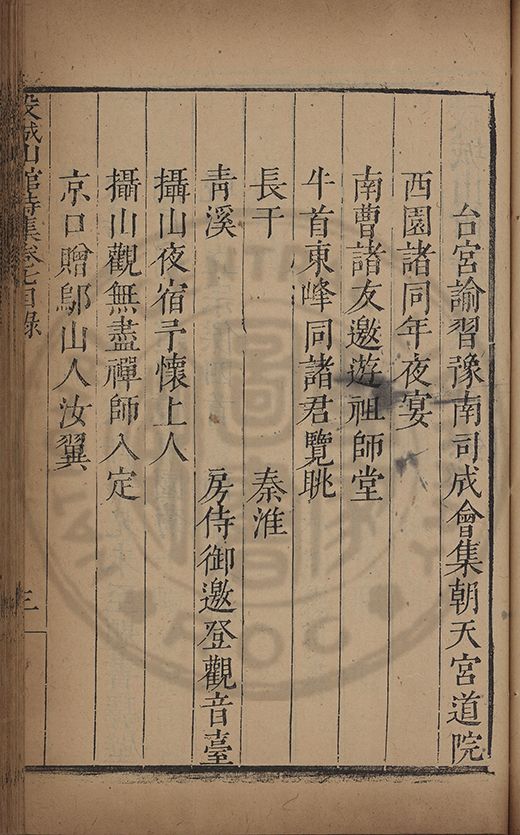 台宮諭習豫南司成會集朝天宮道院
西園諸同年夜宴
南曹諸友邀遊祖師堂
牛首東峰同諸君覽眺
長干 秦淮
青溪 房侍御邀登觀音臺
攝山夜宿予懷上人
攝山觀無盡禪師入定
京口贈鄔山人汝翼
城山館詩集卷七目錄 三